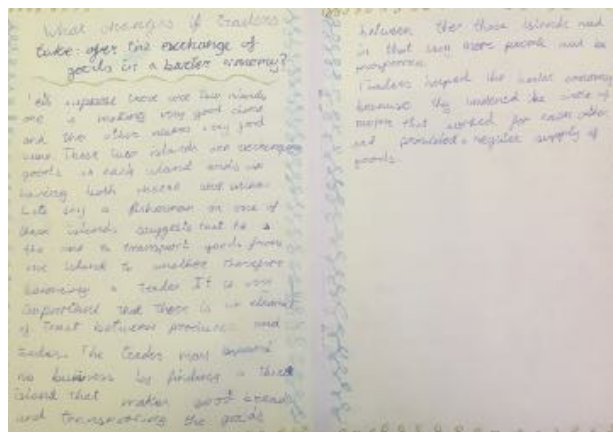 What changes if traders
take over the exchange of
goods in a barter economy?
Let's suppose there are two islands
one is making very good cheese
and the other makes very good
wine. These two islands are exchanging
goods so each island ends up
having both cheese and wine.
Lets say a fisherman on one of
these islands suggests that he is
the one to transport goods from
one island to another therefore
becoming a trader. It is very
important that there is an element
of trust between producer and
trader. The trader may expand
his business by finding a third
island that makes good bread
and transporting the goods
between the three islands and
in that way more people will be
prosperous.
Traders helped the barter economy
because they widened the circle of
people that worked for each other
and provided a regular supply of
goods.